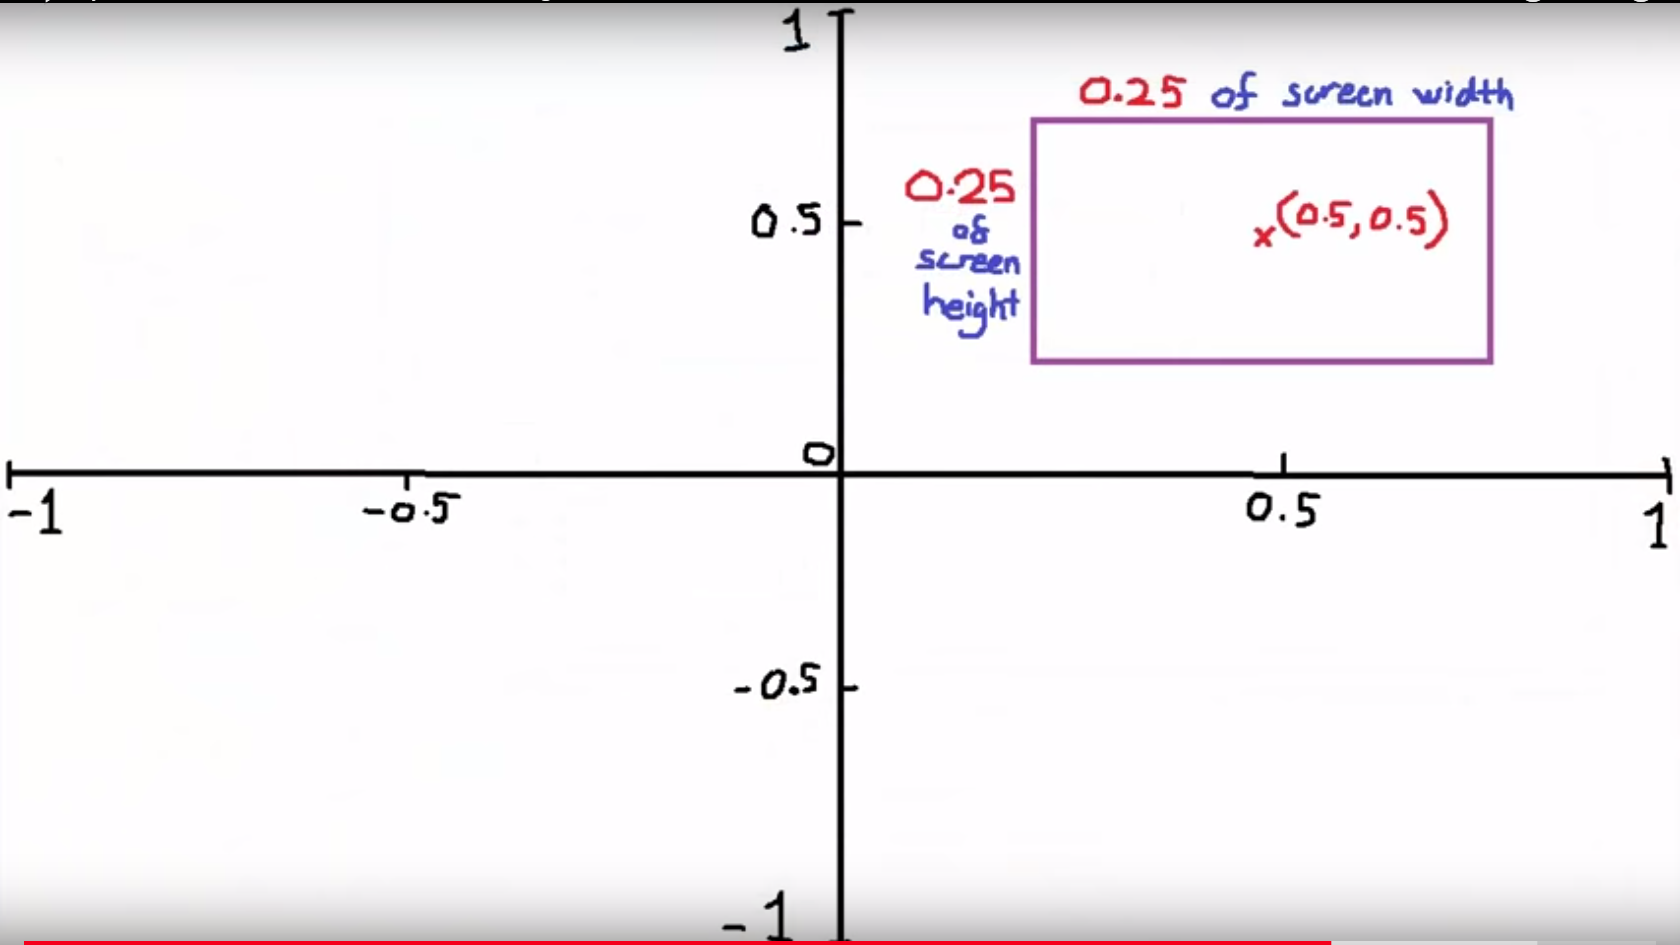 1
0.25 of screen width
0.25
of
screen
height
0.5
x(0.5, 0.5)
0
-1
-0.5
0.5
1
-0.5
-1